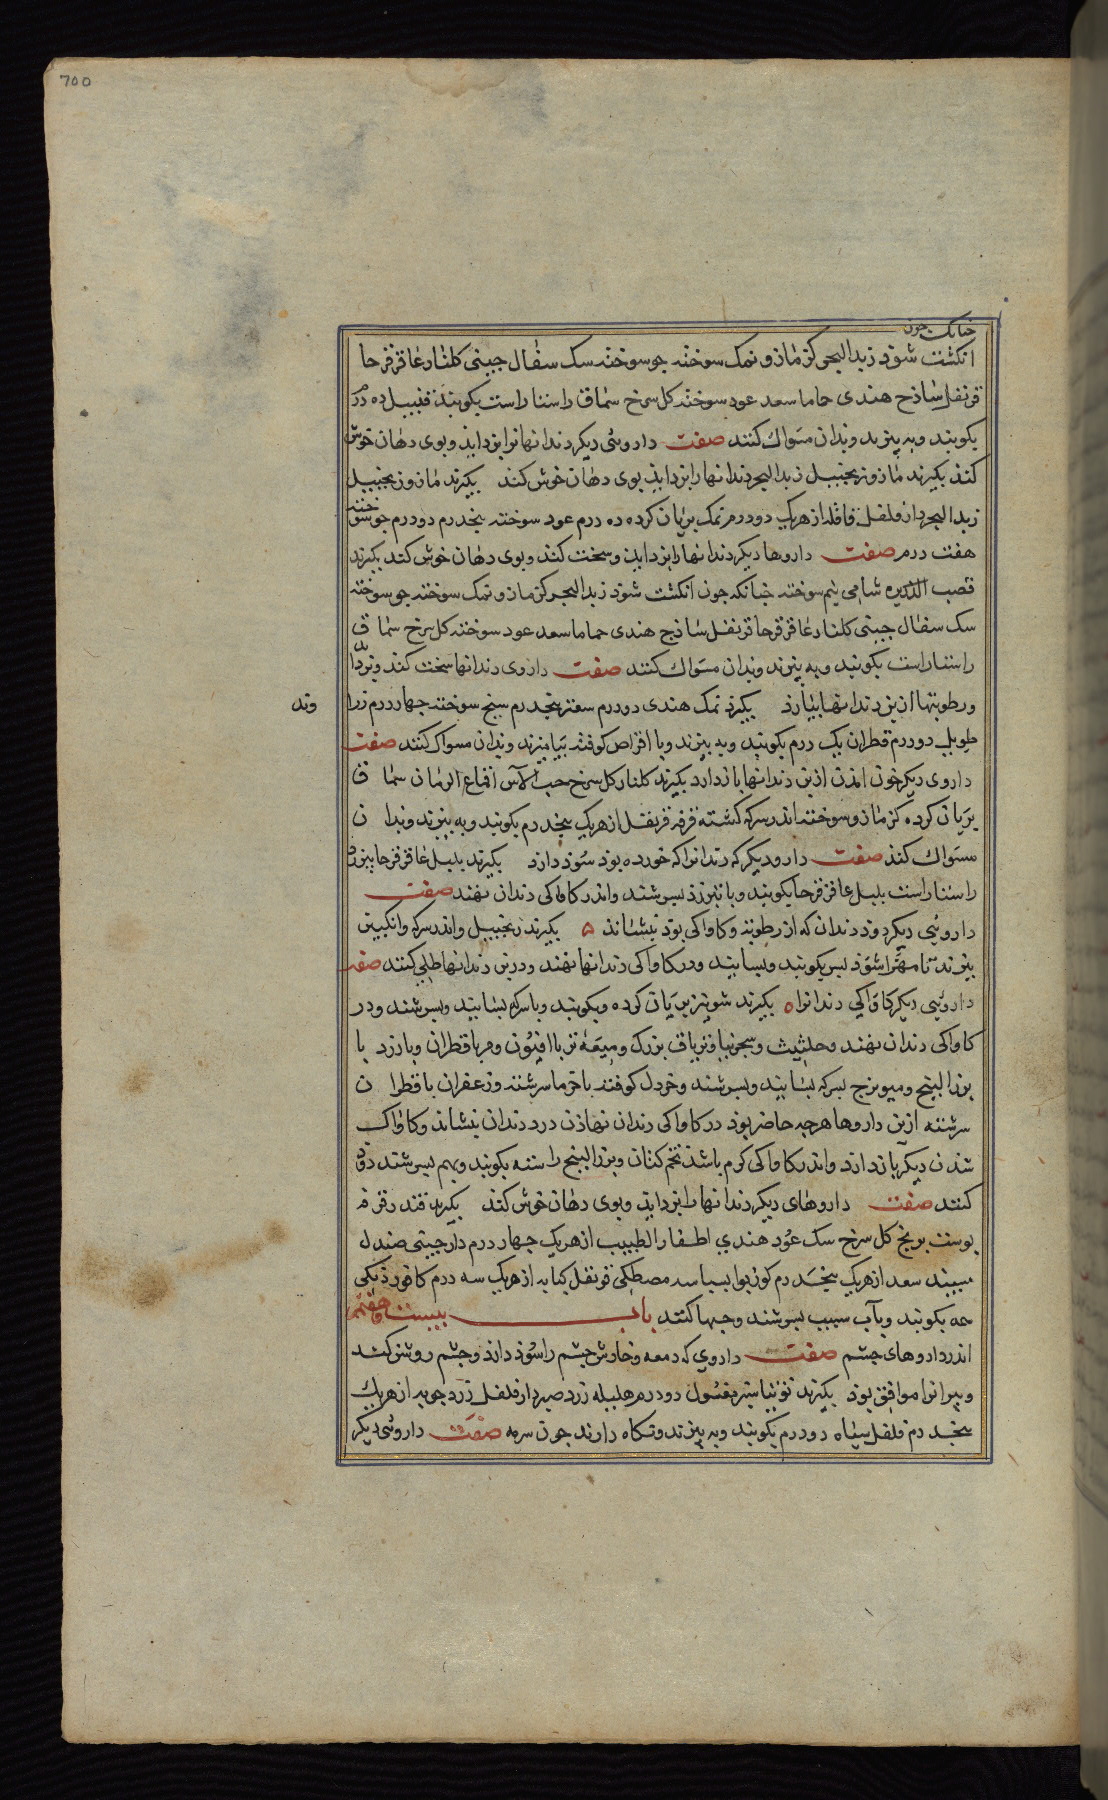 700
خبانک جون
انکشت شوذ زبد البحر کزمازو نمک سوخته جو سوخته سک سفال جینی کلنار عاقرقرحا
قرنفل ساذج هندی حاما سعد عود سوخته کل سرخ سماق راستا راست بکوبند قنبیل ده درم
بکوبند وبه بیزند وبدان مسواک کنند صفت داروئی دیکر دندانها را بزداید وبوی دهان خوش
کند بکیرند مازو زنجبیل زبد البحر دندانها را بزداید بوی دهان خوش کند بکیرند مازو زنجبیل
زبد البحر دارفلفل قاقله از هریک دو درم نمک بریان کرده ده درم عود سوخته پنجدرم دو درم جو سوخته
هفت درم صفت داروها دیکر دندانها را بزداید وسخت کند وبوی دهان خوش کند بکیرند
قصب الذریره شامی نیم سوخته خبانکه جون انکشت شوذ زبد البحر کزمازو نمک سوخته جو سوخته
سک سفال جینی کلنار عاقرقرحا قرنفل ساذج هندی حماما سعد عود سوخته کل سرخ سماق
راستا راست بکوبند وبه بیزند وبدان مسواک کنند صفت داروی دندانها سخت کند وبزدا
ورطوبتها از بن دندانها بیارد بکیرند نمک هندی دو درم سعتر پنجدرم سنج سوخته جهار درم زرا
وند
طویل دو درم قطران یک درم بکوبند وبه بیزند وبا اقراص کوفته بیامیزند وبدان مسواک کنند صفت
داروی دیکر خون امدن از بن دندانها باز دارد بکیرند کلنار کل سرخ حب الآس اقماع الرمان سماق
بریان کرده کزمازو سوخته اندر سرکه کشته قرفه قرنفل از هریک پنجدرم بکوبند وبه بیزند وبدان
مسواک کنند صفت دارو دیکر که دندانرا که خورده بود سود دارد بکیرند بلبل عاقرقرحا بیزرد
راستا راست بلبل عاقرقرحا بکوبند وبا بیرزد بسرشند واندر کاواکی دندان نهند صفت
داروئی دیکر درد دندان که از رطوبة وکاواکی بود بنشاند ۵ بکیرند زنجبیل واندر سرکه وانکبین
بپزند تا مهرا شود بس بکوبند وبسایند ودر کاواکی دندانها نهند ودر بن دندانها طلی کنند صفت
داروئی دیکر کاواکی دندانرا ۵ بکیرند شونیز بریان کرده وبکوبند وبا سرکه بسایند وبسرشند ودر
کاواکی دندان نهند وحلتیت وسجزنیا وتریاق بزرک ومیعه تر با افیون ومر با قطران وبارزد با
بزر البنج ومیویزج بسرکه بسایند وبسرشند وخردل کوفته با خرما سرشته وزعفران با قطران
سرشته ازین داروها هرجه حاضر بود در کاواکی دندان نهادن درد دندان بنشاند وکاواک
شدن دیکر باز دارد واندر کاواکی کرم باشد تخم کتان وبزر البنج راسته بکوبند وبهم بسرشند دود
کنند صفت داروهای دیکر دندانها را بزداید وبوی دهان خوش کند بکیرند قند قرفه
بوست برنج کل سرخ سک عود هندی اظفار الطیب از هریک جهار درم دارجینی صندل
سبید سعد از هریک پنجدرم کوزبوا بسباسه مصطکی قرنفل کبابه از هریک سه درم کافور دنکی
همه بکوبند وبآب سیب بسرشند وحبها کنند باب بیست وهفتم
اندر داروهای جشم صفت داروی که دمعه وخارش جشم را سود دارد وجشم روشن کند
وبیرانرا موافق بود بکیرند توتیا سبز مغسول دو درم هلیله زرد صبر دارفلفل زردجوبه از هریک
پنجدرم فلفل سیاه دو درم بکوبند وبه بیزند ونکاه دارند جون سرمه صفت داروئی دیکر